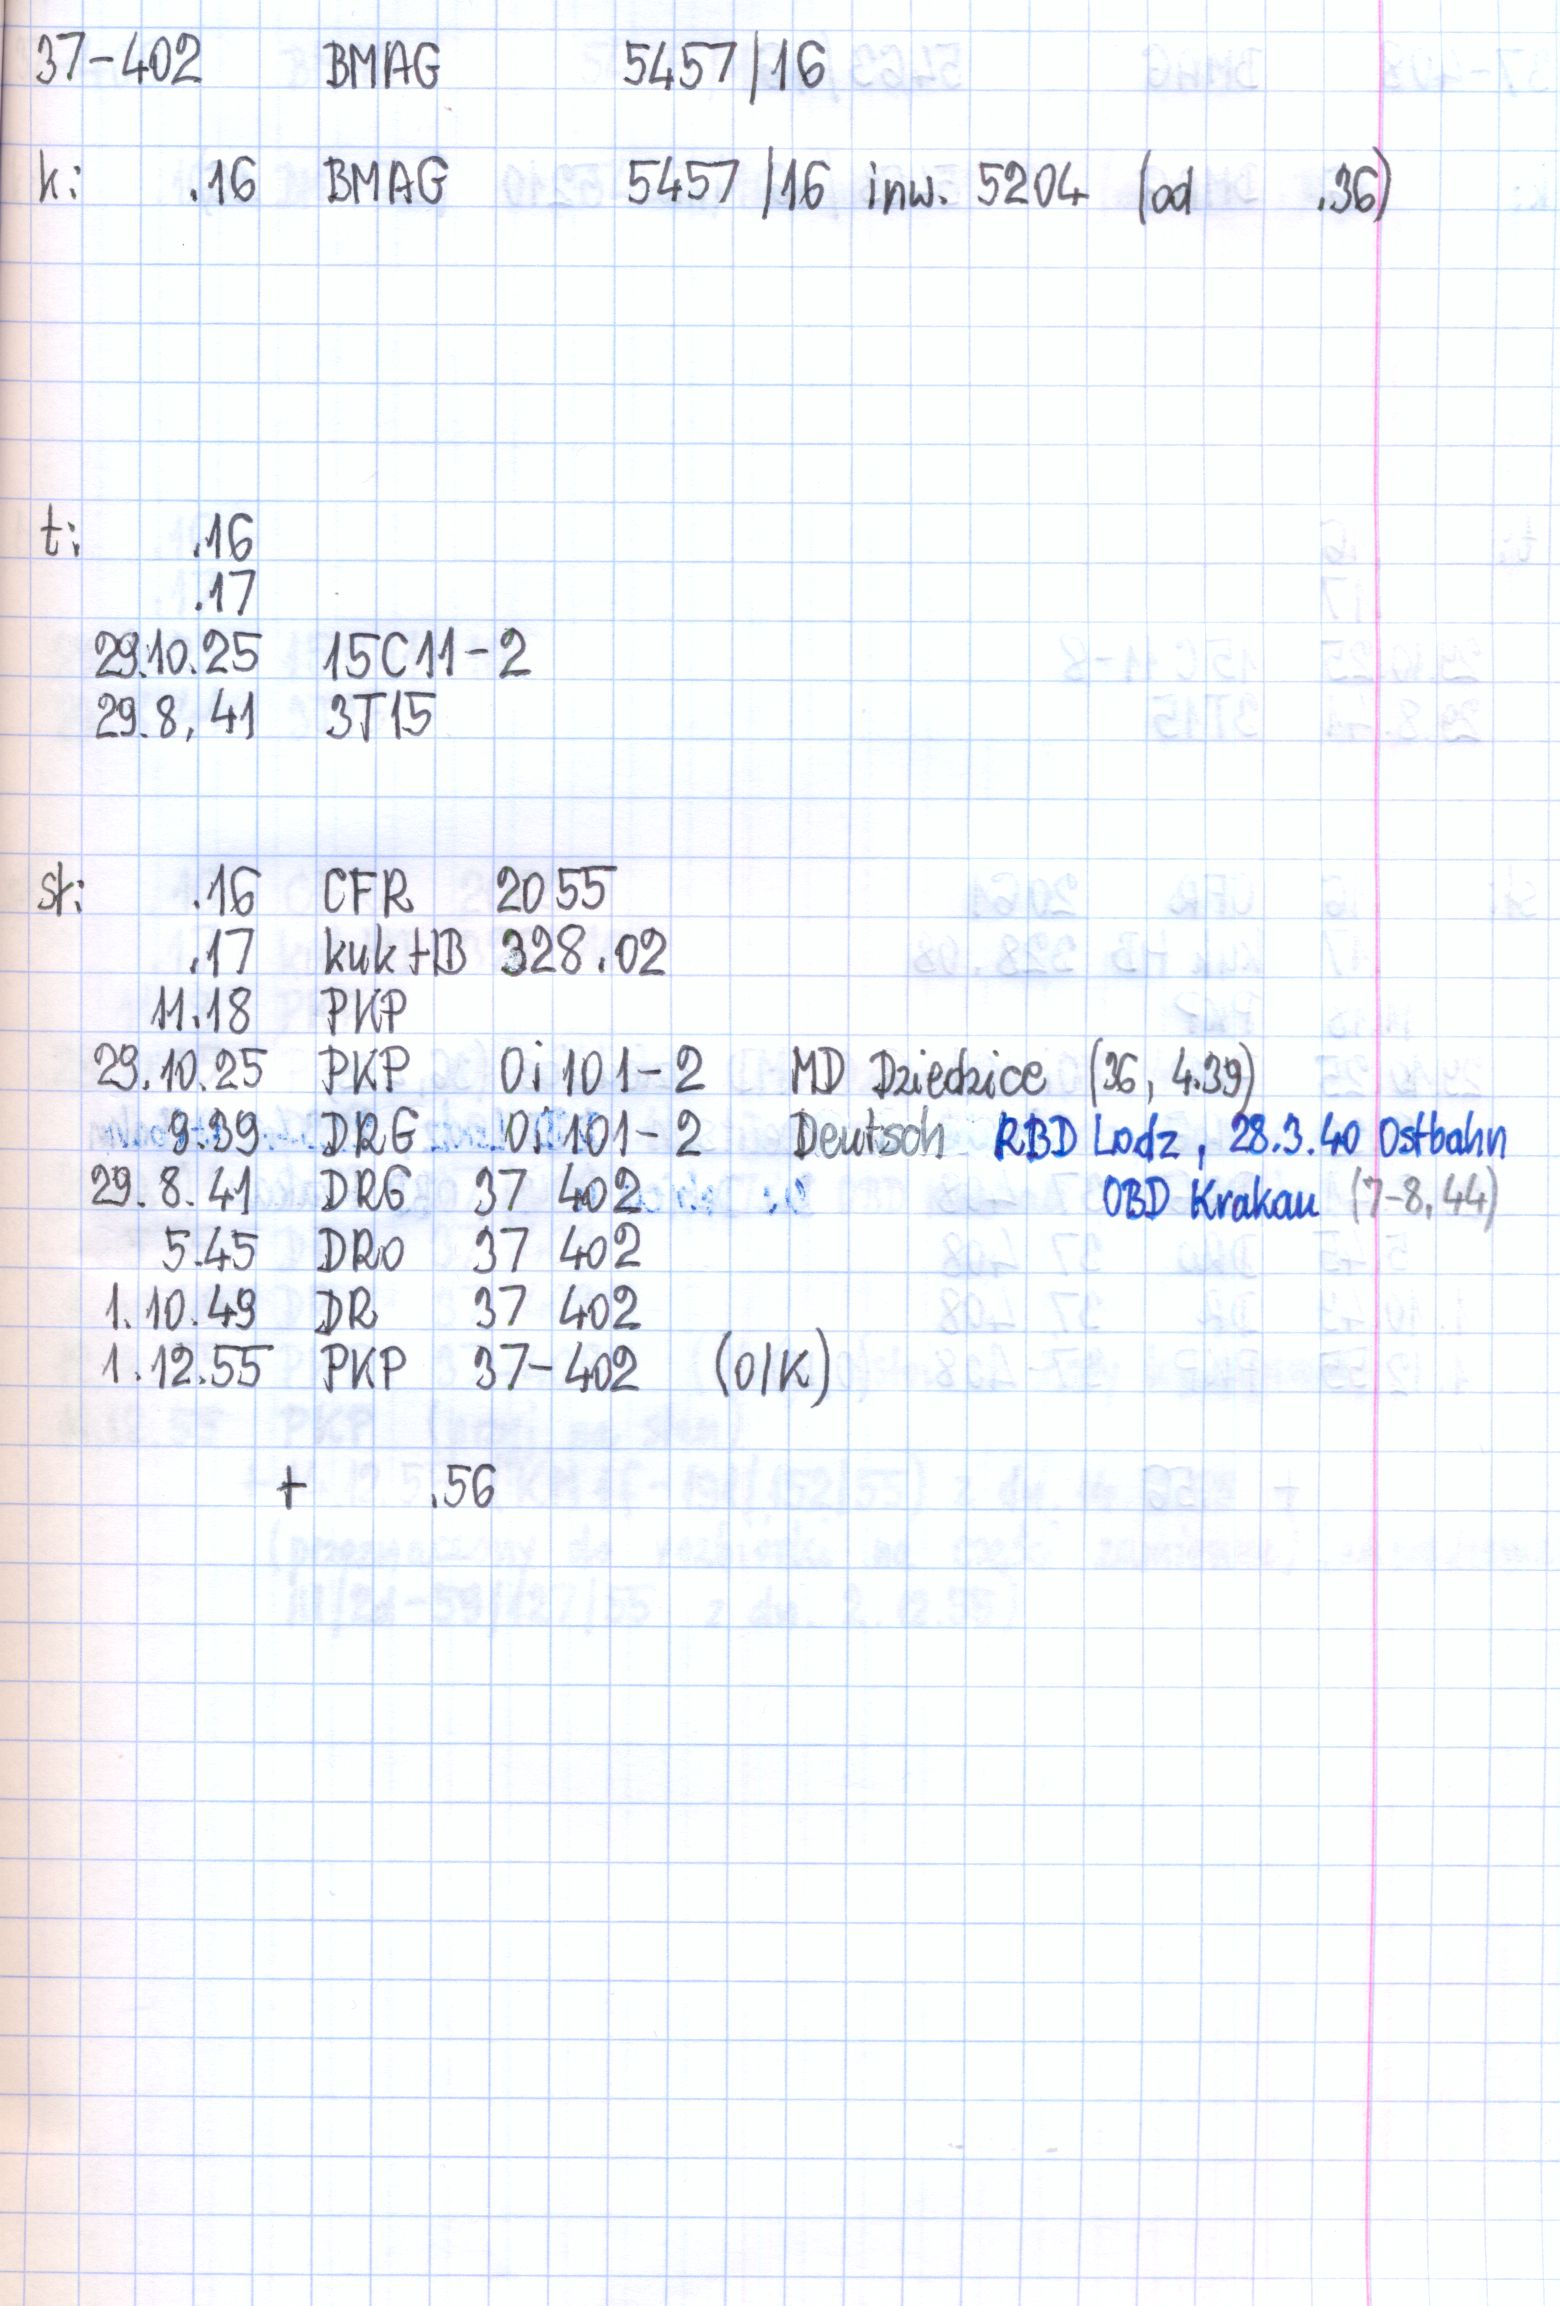 37-402 BMAG 5457/16
k: .16 BMAG 5457/16 inw. 5204 (od .36)
t: .16
.17
29.10.25 15C11-2
29.8.41 3T15
st: .16 CFR 2055
.17 kukHB 328.02
11.18 PKP
29.10.25 PKP Oi101-2 MD Dziedzice (36, 4.39)
9.39 DRG Oi101-2 Deutsch RBD Lodz, 28.3.40 Ostbahn
29.8.41 DRG 37 402 OBD Krakau (7-8.44)
5.45 DRo 37 402
1.10.49 DR 37 402
1.12.55 PKP 37-402 (O/K)
+ .56